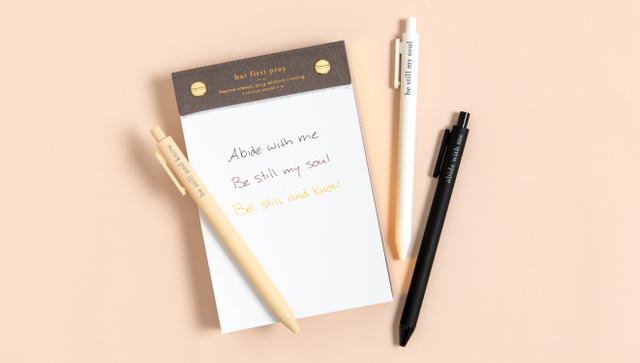 but first pray
Rejoice always, pray without ceasing.
Abide with me
Be still my soul
Be still and know
be still and know
be still my soul
abide with me